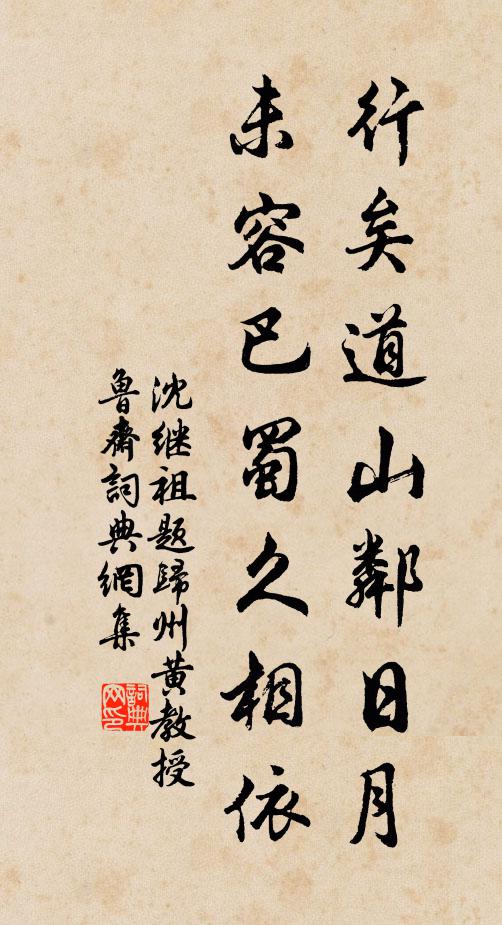 行矣道山鄰日月
未容巴蜀久相依
沈继祖题歸州黄教授
魯齋詞典網集
詞典网印